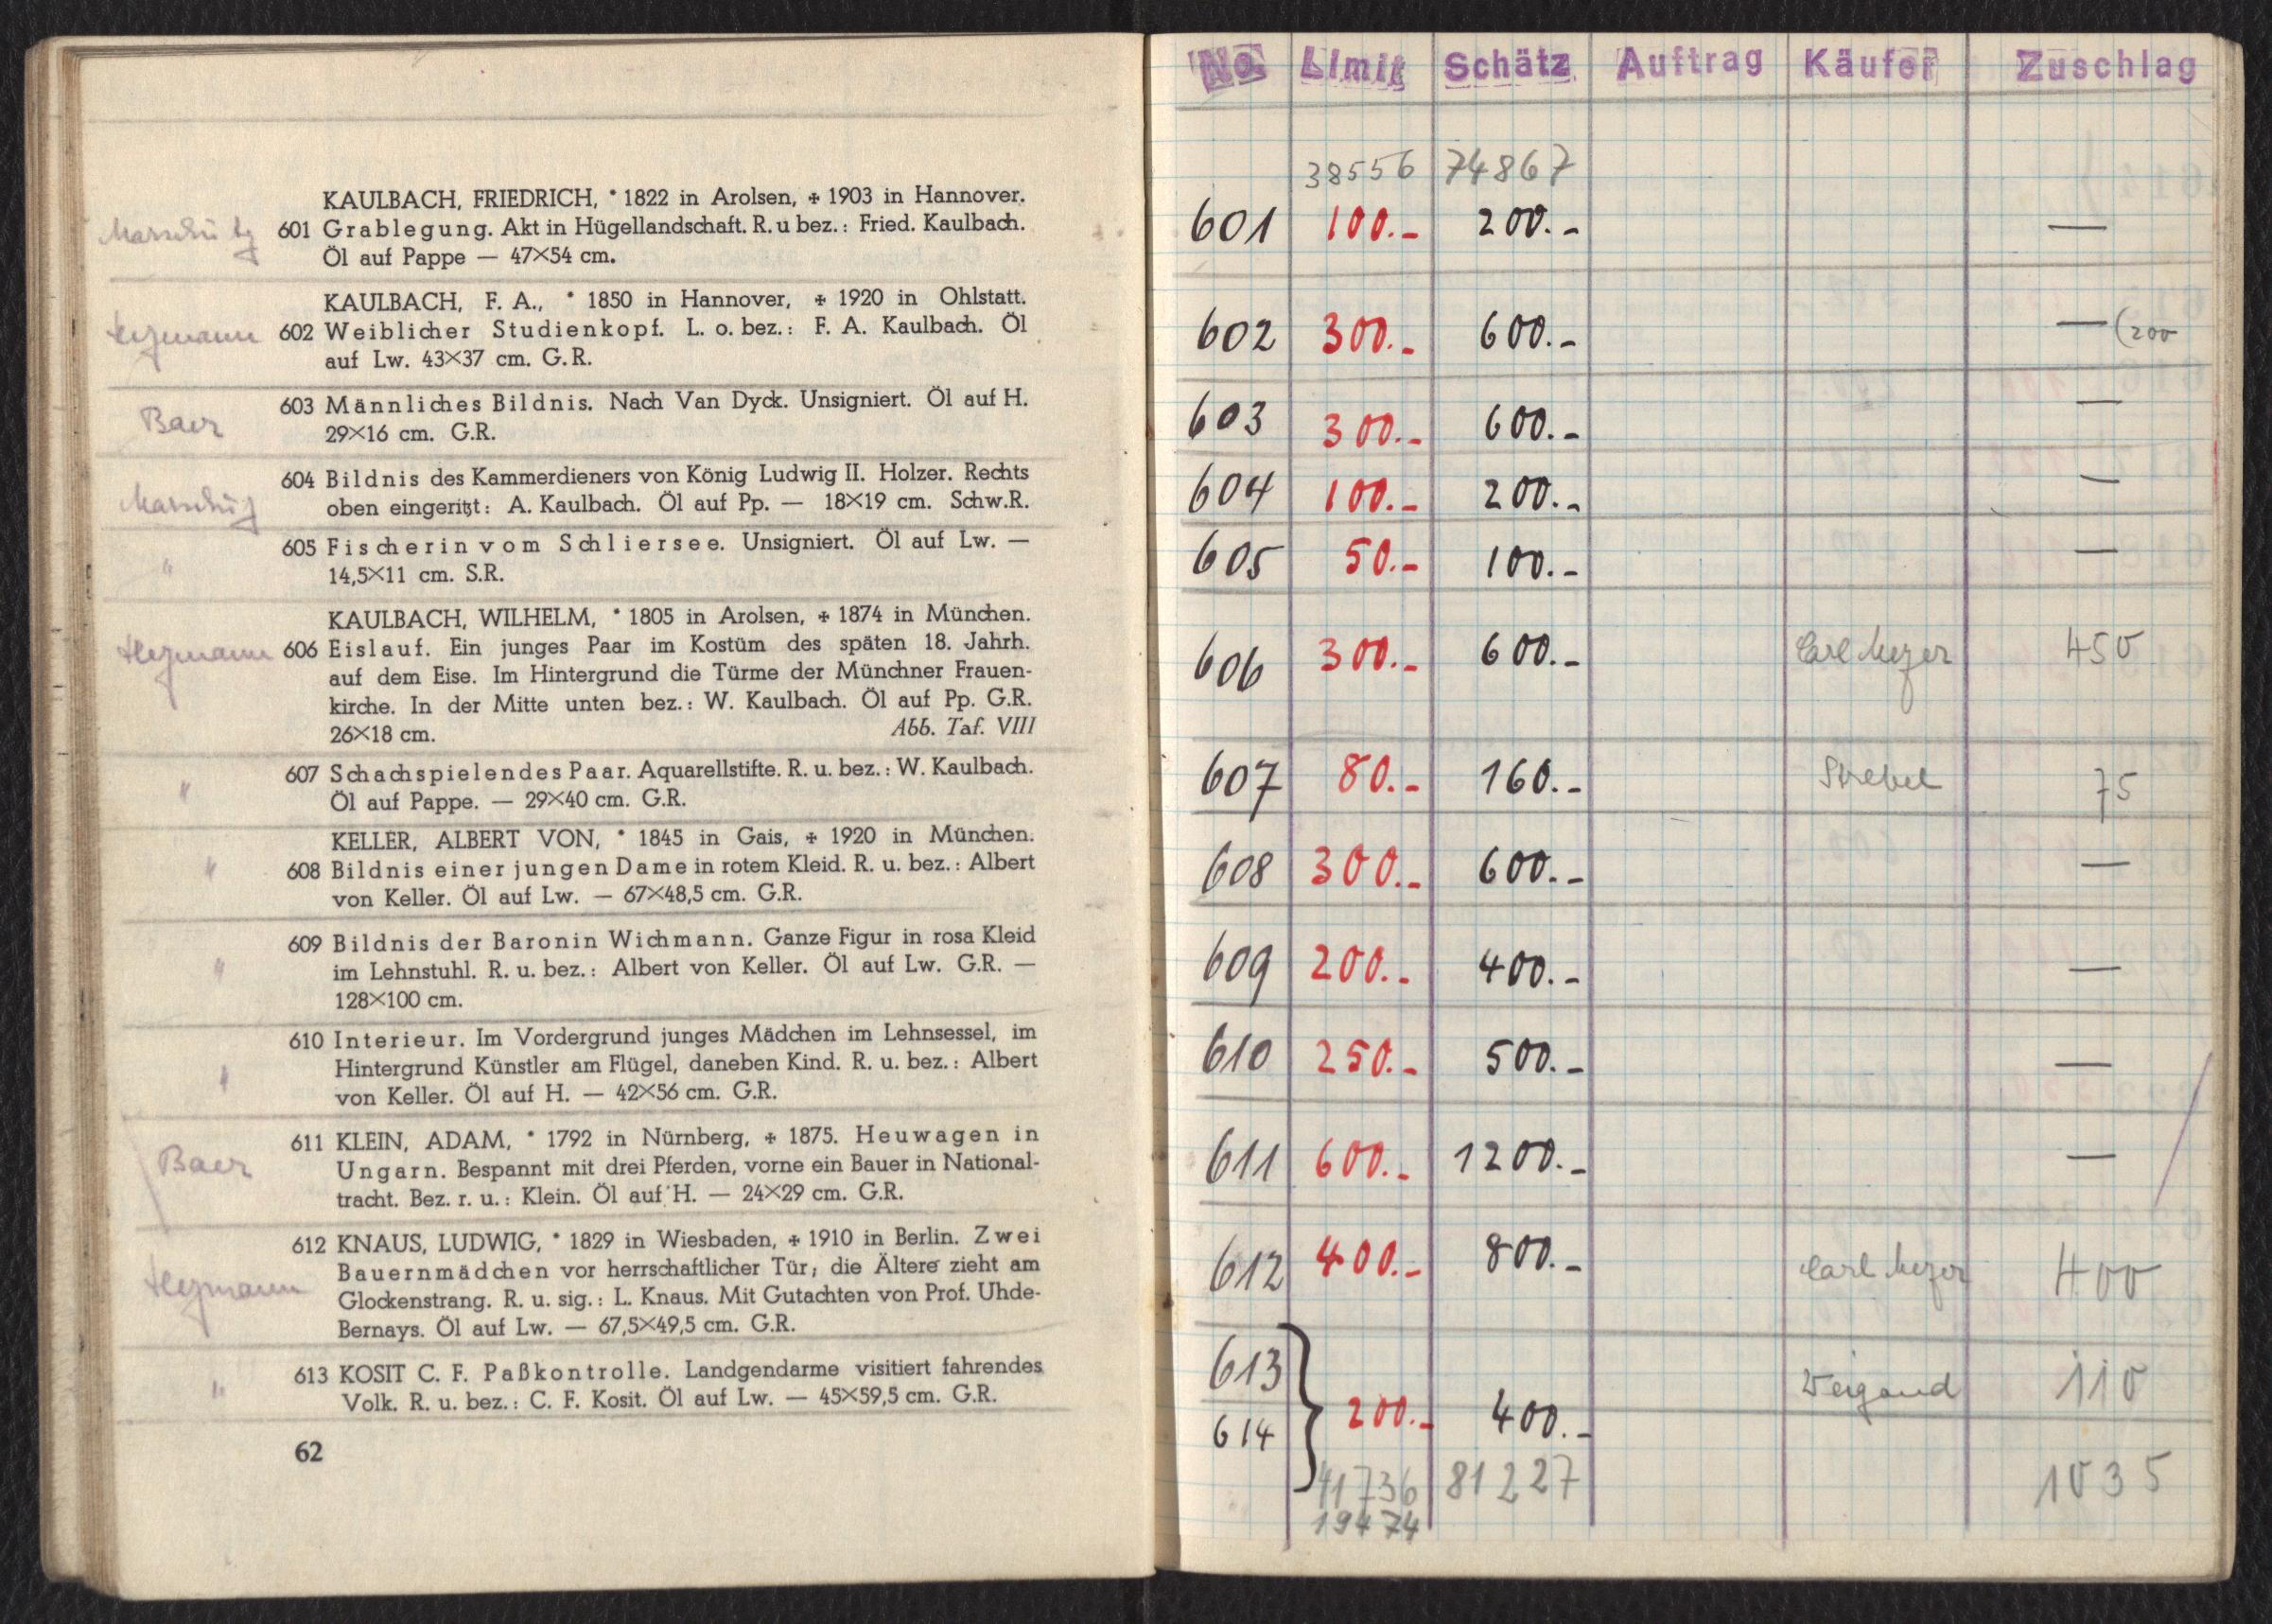 KAULBACH, FRIEDRICH, * 1822 in Arolsen, ✠ 1903 in Hannover.
Marschütz 601 Grablegung. Akt in Hügellandschaft. R. u bez.: Fried. Kaulbach.
Öl auf Pappe — 47×54 cm.
KAULBACH, F. A., * 1850 in Hannover, ✠ 1920 in Ohlstatt.
602 Weiblicher Studienkopf. L. o. bez.: F. A. Kaulbach. Öl
auf Lw. 43×37 cm. G.R.
603 Männliches Bildnis. Nach Van Dyck. Unsigniert. Öl auf H.
Baer 29×16 cm. G.R.
604 Bildnis des Kammerdieners von König Ludwig II. Holzer. Rechts
Marschütz oben eingeritzt: A. Kaulbach. Öl auf Pp. — 18×19 cm. Schw.R.
605 Fischerin vom Schliersee. Unsigniert. Öl auf Lw. —
" 14,5×11 cm. S.R.
KAULBACH, WILHELM, * 1805 in Arolsen, ✠ 1874 in München.
606 Eislauf. Ein junges Paar im Kostüm des späten 18. Jahrh.
auf dem Eise. Im Hintergrund die Türme der Münchner Frauen-
kirche. In der Mitte unten bez.: W. Kaulbach. Öl auf Pp. G.R.
26×18 cm. Abb. Taf. VIII
607 Schachspielendes Paar. Aquarellstifte. R. u. bez.: W. Kaulbach.
" Öl auf Pappe. — 29×40 cm. G.R.
KELLER, ALBERT VON, * 1845 in Gais, ✠ 1920 in München.
" 608 Bildnis einer jungen Dame in rotem Kleid. R. u. bez.: Albert
von Keller. Öl auf Lw. — 67×48,5 cm. G.R.
609 Bildnis der Baronin Wichmann. Ganze Figur in rosa Kleid
" im Lehnstuhl. R. u. bez.: Albert von Keller. Öl auf Lw. G.R. —
128×100 cm.
610 Interieur. Im Vordergrund junges Mädchen im Lehnsessel, im
" Hintergrund Künstler am Flügel, daneben Kind. R. u. bez.: Albert
von Keller. Öl auf H. — 42×56 cm. G.R.
611 KLEIN, ADAM, * 1792 in Nürnberg, ✠ 1875. Heuwagen in
Baer Ungarn. Bespannt mit drei Pferden, vorne ein Bauer in National-
tracht. Bez. r. u.: Klein. Öl auf H. — 24×29 cm. G.R.
612 KNAUS, LUDWIG, * 1829 in Wiesbaden, ✠ 1910 in Berlin. Zwei
Bauernmädchen vor herrschaftlicher Tür; die Ältere zieht am
Glockenstrang. R. u. sig.: L. Knaus. Mit Gutachten von Prof. Uhde-
Bernays. Öl auf Lw. — 67,5×49,5 cm. G.R.
" 613 KOSIT C. F. Paßkontrolle. Landgendarme visitiert fahrendes
Volk. R. u. bez.: C. F. Kosit. Öl auf Lw. — 45×59,5 cm. G.R.
62
No. Limit Schätz Auftrag Käufer Zuschlag
38556 74867
601 100.- 200.- —
602 300.- 600.- — (200
603 300.- 600.- —
604 100.- 200.- —
605 50.- 100.- —
606 300.- 600.- Carl Meyer 450
607 80.- 160.- Strebel 75
608 300.- 600.- —
609 200.- 400.- —
610 250.- 500.- —
611 600.- 1200.- —
612 400.- 800.- Carl Meyer 400
613 Weigand 110
200.- 400.-
614
41736 81227 1035
19474